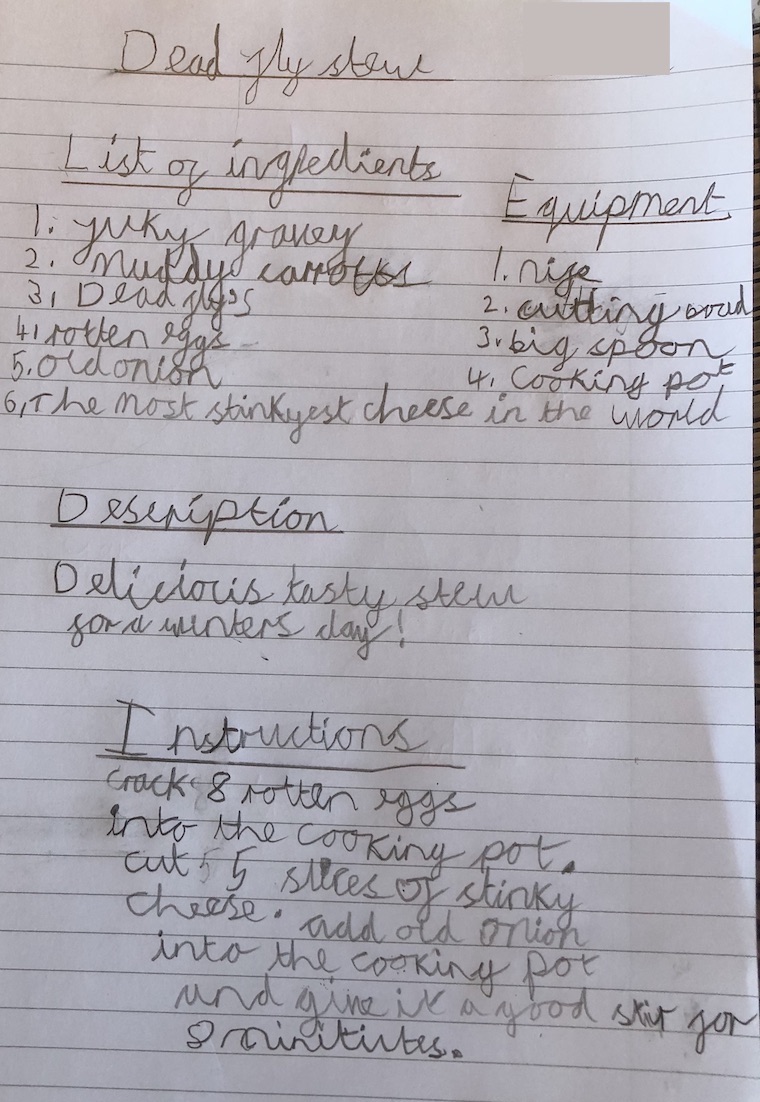 Dead fly stew
List of ingredients
1. yuky gravey
2. muddy carrotts
3, Dead fly's
4, rotten eggs
5. old onion
6, The most stinkyest cheese in the world
Equipment
1. nife
2. cutting
3. big spoon
4. Cooking pot
Description
Delicious tasty stew
for a winters day!
Instructions
crack 8 rotten eggs
into the cooking pot.
cut 5 slices of stinky
cheese. add old onion
into the cooking pot
and give it a good stir for
8